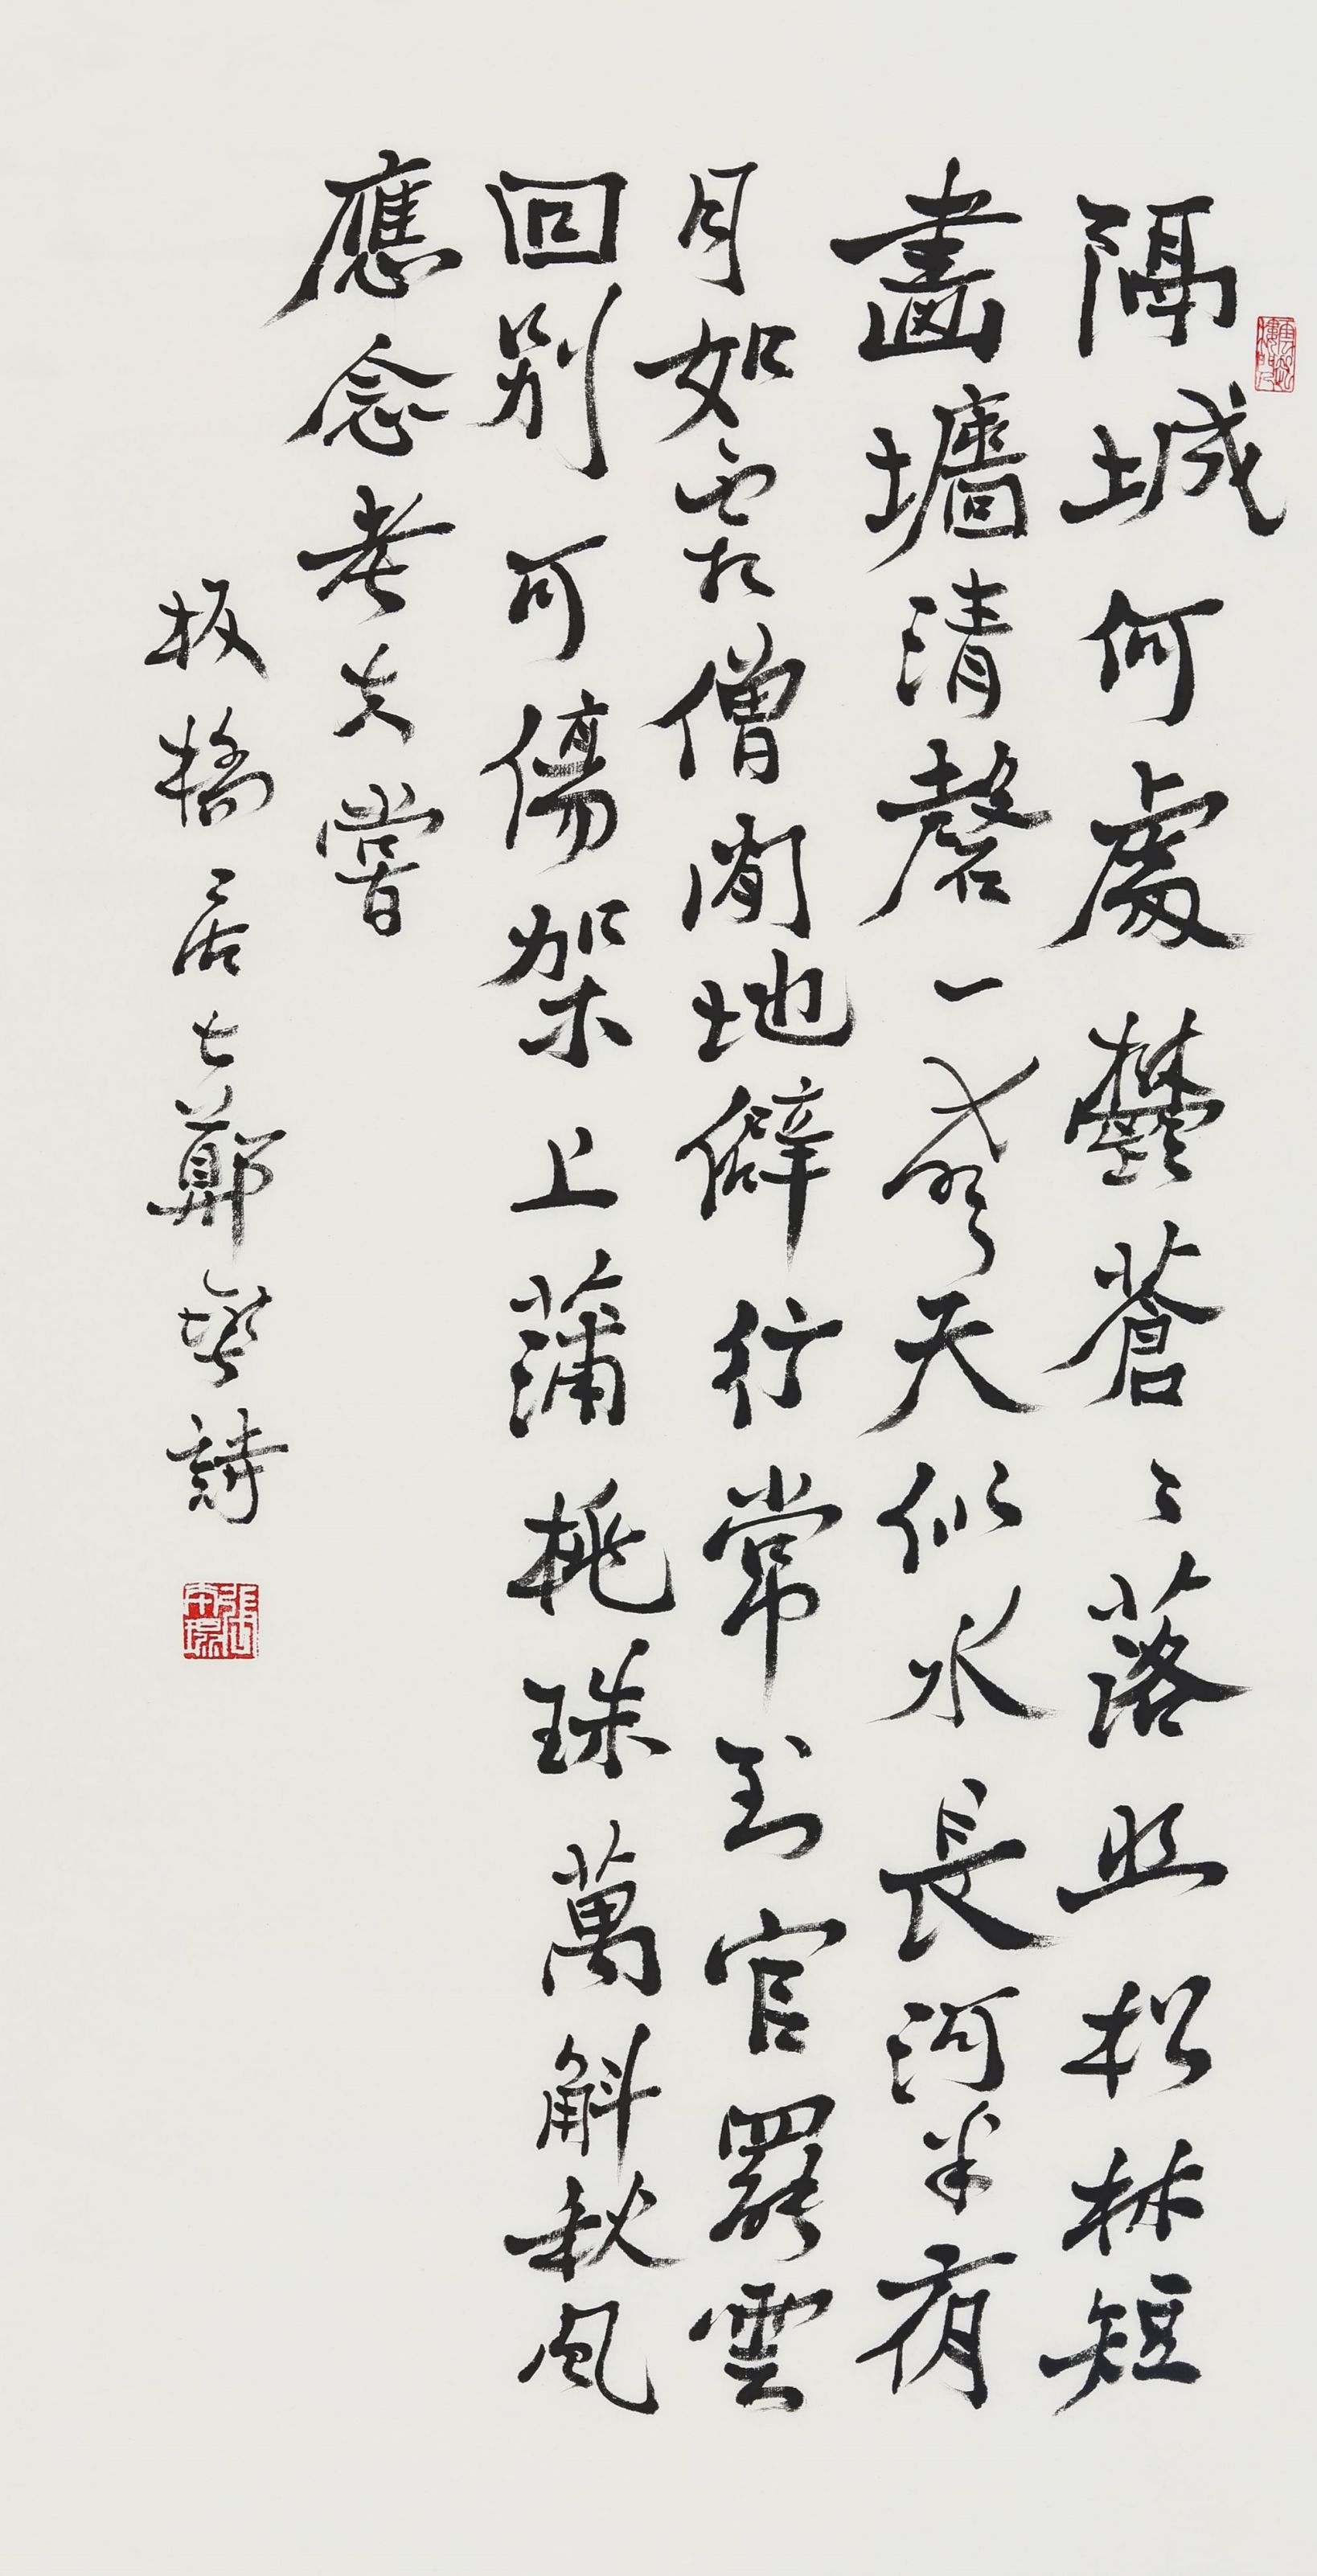 隔城何處鬱蒼々落照松林短
畫墻清磬一聲天似水長河半夜
月如霜僧閒地僻行常到官罷雲
回别可傷架上蒲桃珠萬斛秋風
應念老夫嘗
板橋居士鄭燮詩